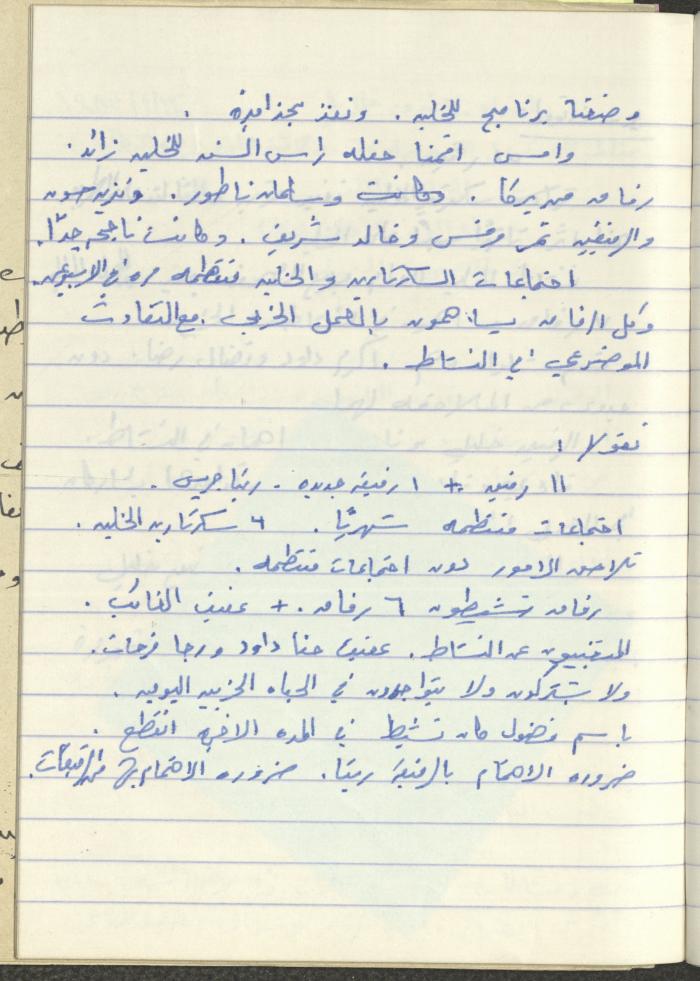 وضعنا برنامج للخليه . ونفذ بحذافيره .
وامس اقمنا حفله راس السنه للخليه زائد .
رفاق من يركا . وكانت وسلمان ناطور .
والرفيقين نمر مرقس وخالد شريف . وكانت ناجحه جدّا .
اجتماعات السكرتاريه والخليه منتظمه مره في الاسبوعين .
وكل الرفاق يساهمون بالعمل الحزبي . مع التفاوت
الموضوعي في النشاط .
نقولا :
١١ رفيق + ١ رفيقه جديده . ريتا جريس .
اجتماعات منتظمه شهريًا . ٦ سكرتاريه الخليه .
تلاحق الامور دون اجتماعات منتظمه .
رفاق نشيطون ٦ رفاق . + عفيف الغائب .
المتغيبين عن النشاط . عفيف حنا داود ورجا فرحات .
ولا يشتركون ولا يتواجدون في الحياه الحزبيه اليوميه .
باسم فضول كان نشيط في المده الاخيره انقطع .
ضروره الاهتمام بالرفيقه ريتا . ضروره الاهتمام من الرفيقات .